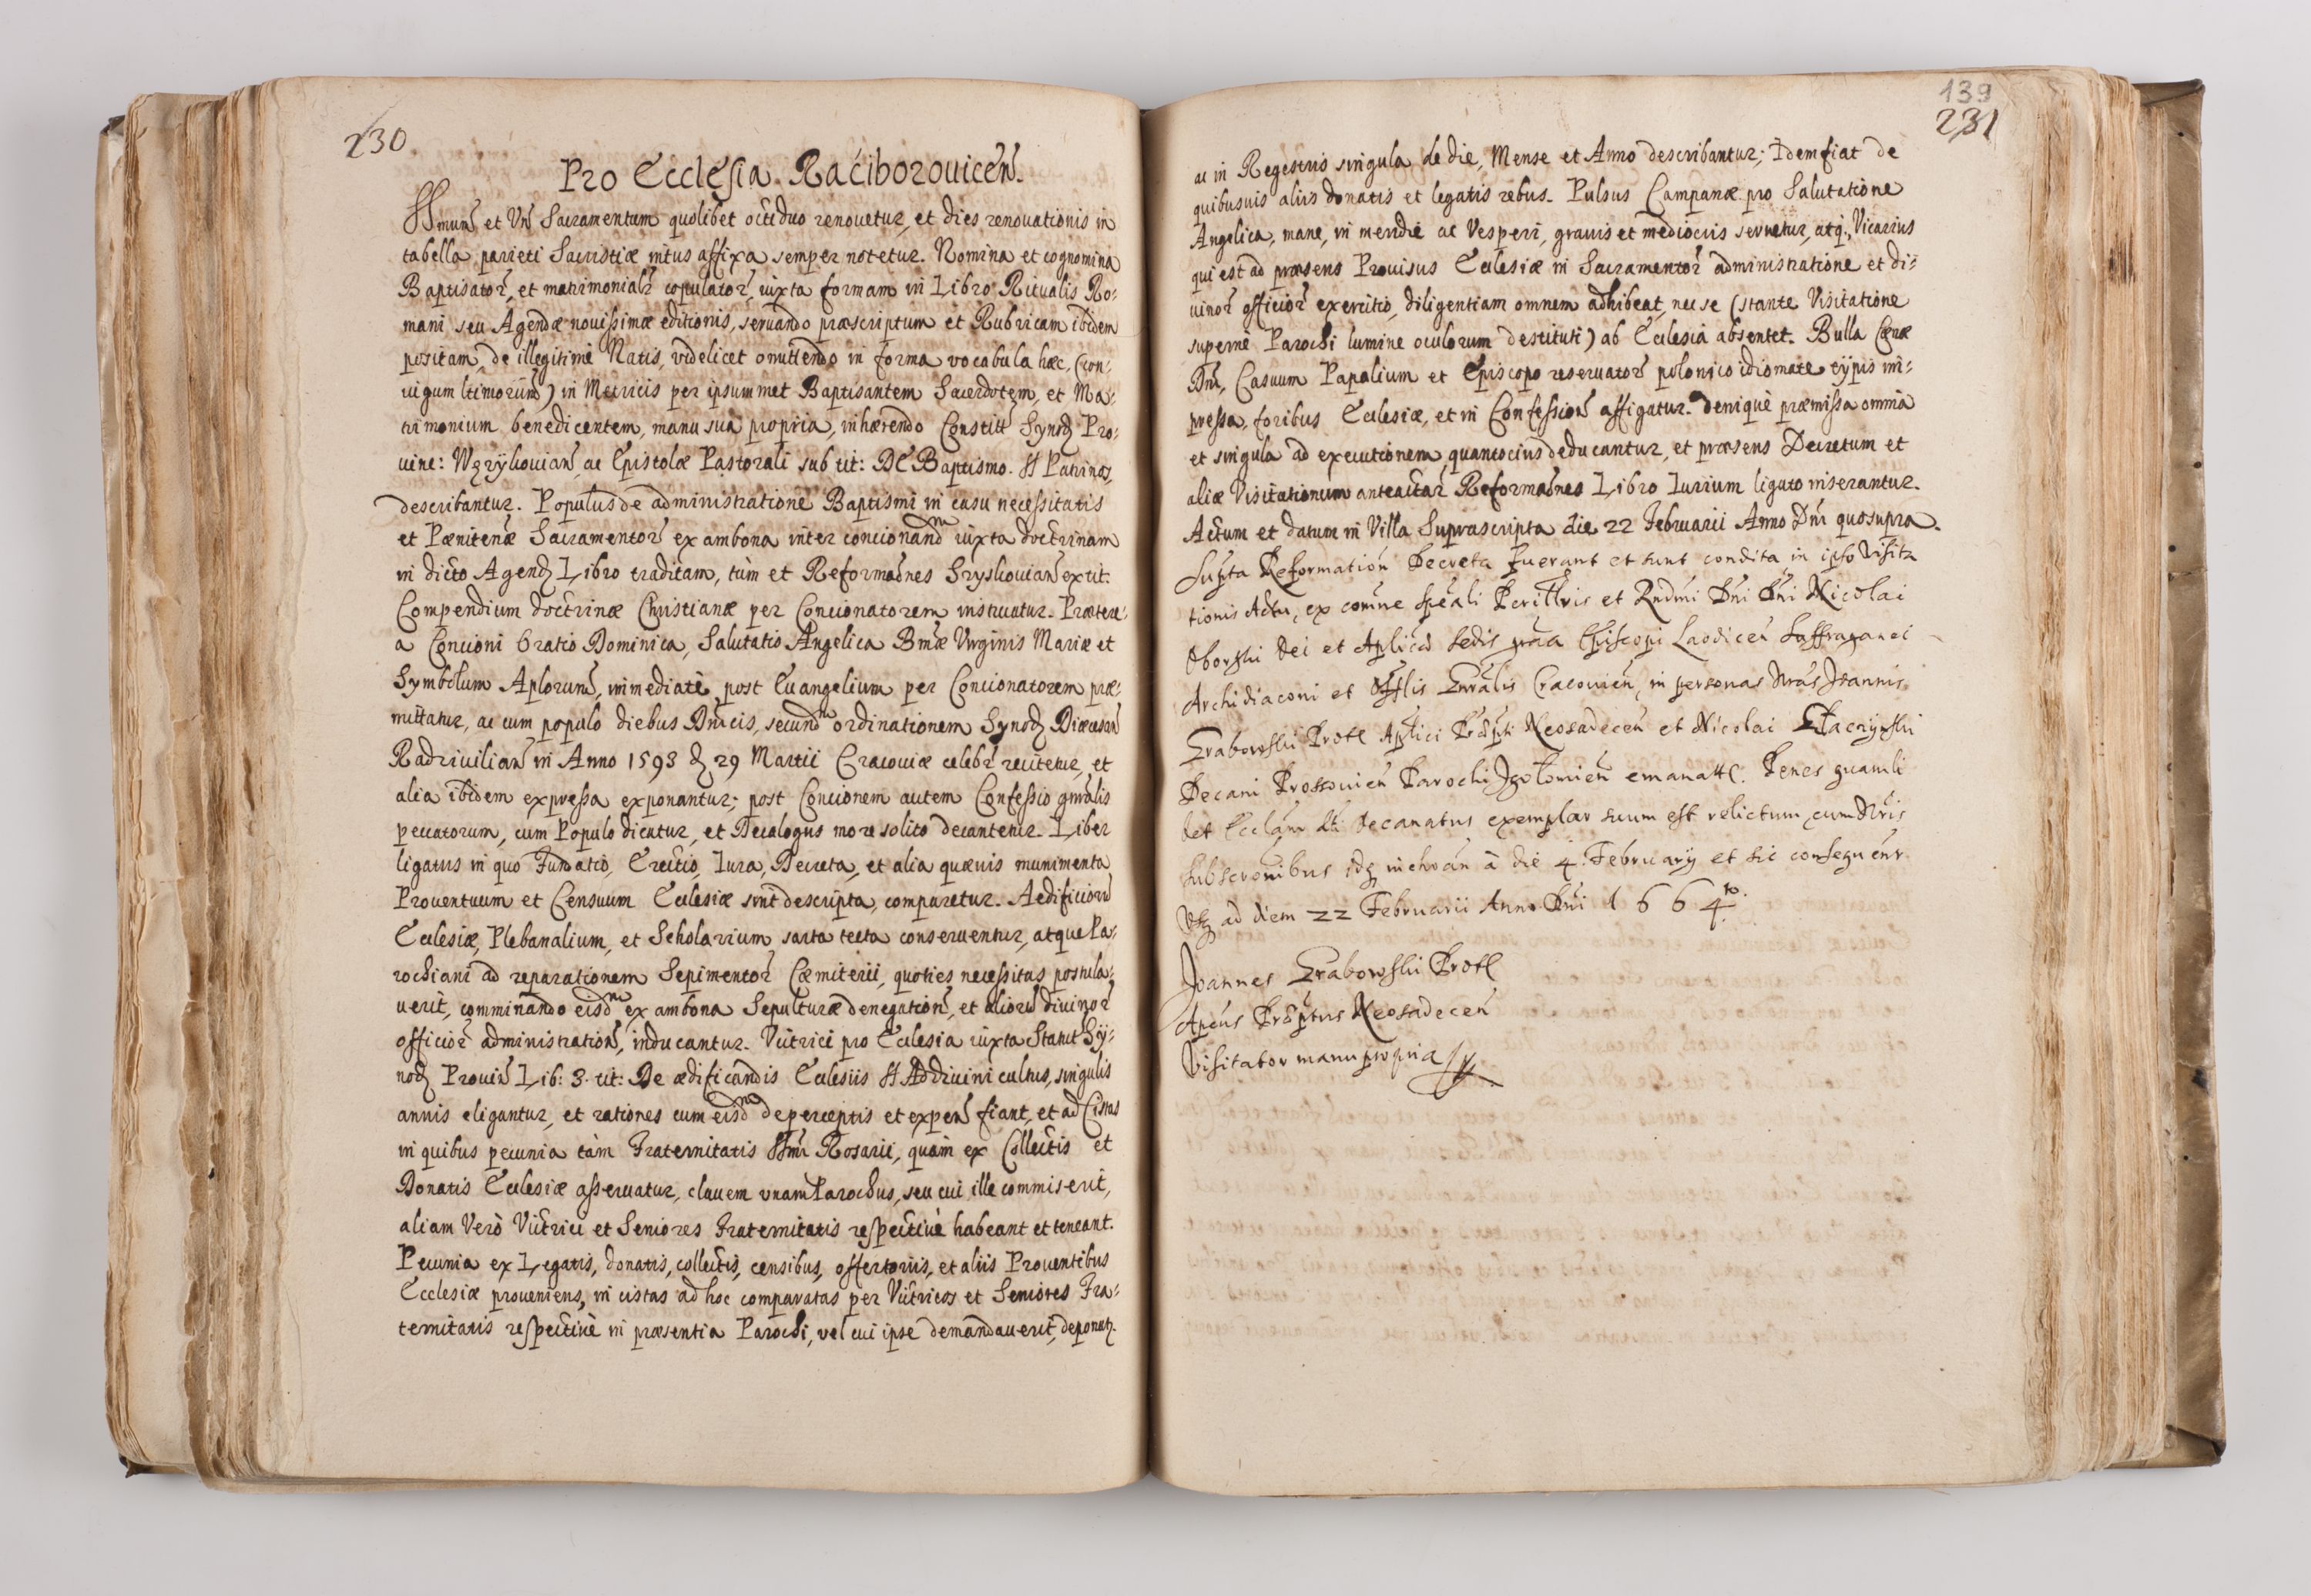 230
Pro Ecclesia Raciborouicen̄.
SSmum̄ et Vn̄ Sacramentum quolibet octiduo renouetur, et dies renouationis in
tabella parieti Sacristiæ intus affixa semper notetur. Nomina et cognomina
Baptisator̄, et matrimonialr̄ copulator̄, iuxta formam in Libro Ritualis Ro:
mani seu Agendæ nouissimæ editionis, seruando præscriptum et Rubricam ibidem
positam, de illegitimè Natis, videlicet omittendo in forma vocabula hæc, (con:
iugum ltimorum̄) in Metricis per ipsummet Baptisantem Sacerdotem, et Ma:
trimonium benedicentem, manu sua propria, inhærendo Constitt Synoḍ Pro:
uinc: Wężykouian̄ ac Epistolæ Pastorali sub tit: DE Baptismo. § Patrinos,
describantur. Populus de administratione Baptismi in casu necessitatis
et Pænitenæ Sacramentor̄ ex ambona inter concionandm iuxta doctrinam
in dicto Agenḍ Libro traditam, tùm et Reformaōnes Szyskouian̄ ex tit:
Compendium doctrinæ Christianæ per Concionatorem instruatur. Prætere:
a Concioni Oratio Dominica, Salutatio Angelica Bmæ Virginis Mariæ et
Symbolum Aplorum̄, immediatè post Euangelium per Concionatorem præ:
mittatur, ac cum populo diebus Dnīcis, secundm ordinationem Synoḍ Diæcesan̄
Radziuilian̄ in Anno 1593 d 29 Martii Cracouiæ celebr̄ recitetur, et
alia ibidem expressa exponantur; post Concionem autem Confessio gnrālis
peccatorum, cum Populo dicatur, et Decalogus more solito decantetur. Liber
ligatus in quo Fundatio, Erectio, Iura, Decreta, et alia quæuis munimenta
Prouentuum et Censuum Ecclesiæ sint descripta, comparetur. Aedificiorū
Ecclesiæ, Plebanalium, et Scholarium sarta tecta conseruentur, atque Pa:
rochiani ad reparationem Sepimentor̄ Cæmiterii, quoties necessitas postula:
uerit, comminando eisdm ex ambona Sepulturæ denegation̄, et aliorū diuinor̄
officior̄ administration̄, inducantur. Vitrici pro Ecclesia iuxta Statut Sy:
noḍ Prouin̄ Lib: 3. tit: De ædificandis Ecclesiis § Ad Diuini cultus, singulis
annis eligantur, et rationes cum eisdm de perceptis et expen̄ fiant, et ad Cistas
in quibus pecunia tàm Fraternitatis SSmi Rosarii, quàm ex Collectis et
Donatis Ecclesiæ asseruatur, clauem vnam Parochus, seu cui ille commiserit,
aliam Verò Vitrici et Seniores Fraternitatis respectiuè habeant et teneant.
Pecunia ex Legatis, donatis, collectis, censibus, offertoriis, et aliis Prouentibus
Ecclesiæ proueniens, in cistas ad hoc comparatas per Vitricos et Seniores Fra:
ternitatis respectiuè in præsentia Parochi, vel cui ipse demandauerit, deponatr.
139
231
ac in Regestris singula de die, Mense et Anno describantur; Idem fiat de
quibusuis aliis donatis et legatis rebus. Pulsus Campanæ pro Salutatione
Angelica, mane, in meridie ac Vesperi, grauis et mediocris seruetur, atq;, Vicarius
qui est ad præsens Prouisus Ecclesiæ in Sacramentor̄ administratione et di:
uinor̄ officior̄ exercitio, diligentiam omnem adhibeat, nec se (stante Visitatione
supernè Parochi lumine oculorum destituti) ab Ecclesia absentet. Bulla Cænæ
Dnī, Casuum Papalium et Episcopo reseruator̄ polonico idiomate typis im:
pressa, foribus Ecclesiæ, et in Confession̄ affigatur. deniquè præmissa omnia
et singula ad executionem quantocius deducantur, et præsens Decretum et
aliæ Visitationum anteactar̄ Reformaōnes Libro Iurium ligato inserantur.
Actum et datum in Villa Suprascripta die 22 Februarii Anno Dnī quo supra.
Supta Reformation̄ Decreta fuerant et sunt condita in ipso Visita
tionis Actu, ex comne speāli Perillris et Rndmi Dni Dni Nicolai
Oborski Dei et Aplicæ Sedis gratia Episcopi Laodicen̄ Suffraganei
Archidiaconi et Offlis Gnrālis Cracouien̄, in personas Nras Joannis
Grabowski Prott Aplici Præpti Neosadecen̄ et Nicolai
Decani Prossouien̄ Parochi Igołomien̄ emanatæ. Penes quamli
bet Ecclām dti decanatus exemplar suum est relictum cum Nris
subscronibus idq inchoan̄ à die 4. February et sic consequenr
Vsq ad diem 22 Februarii Anno Dni 1664to.
Joannes Grabowski Prott
Apcus Præptus Neosadecen̄
Visitator manu propria